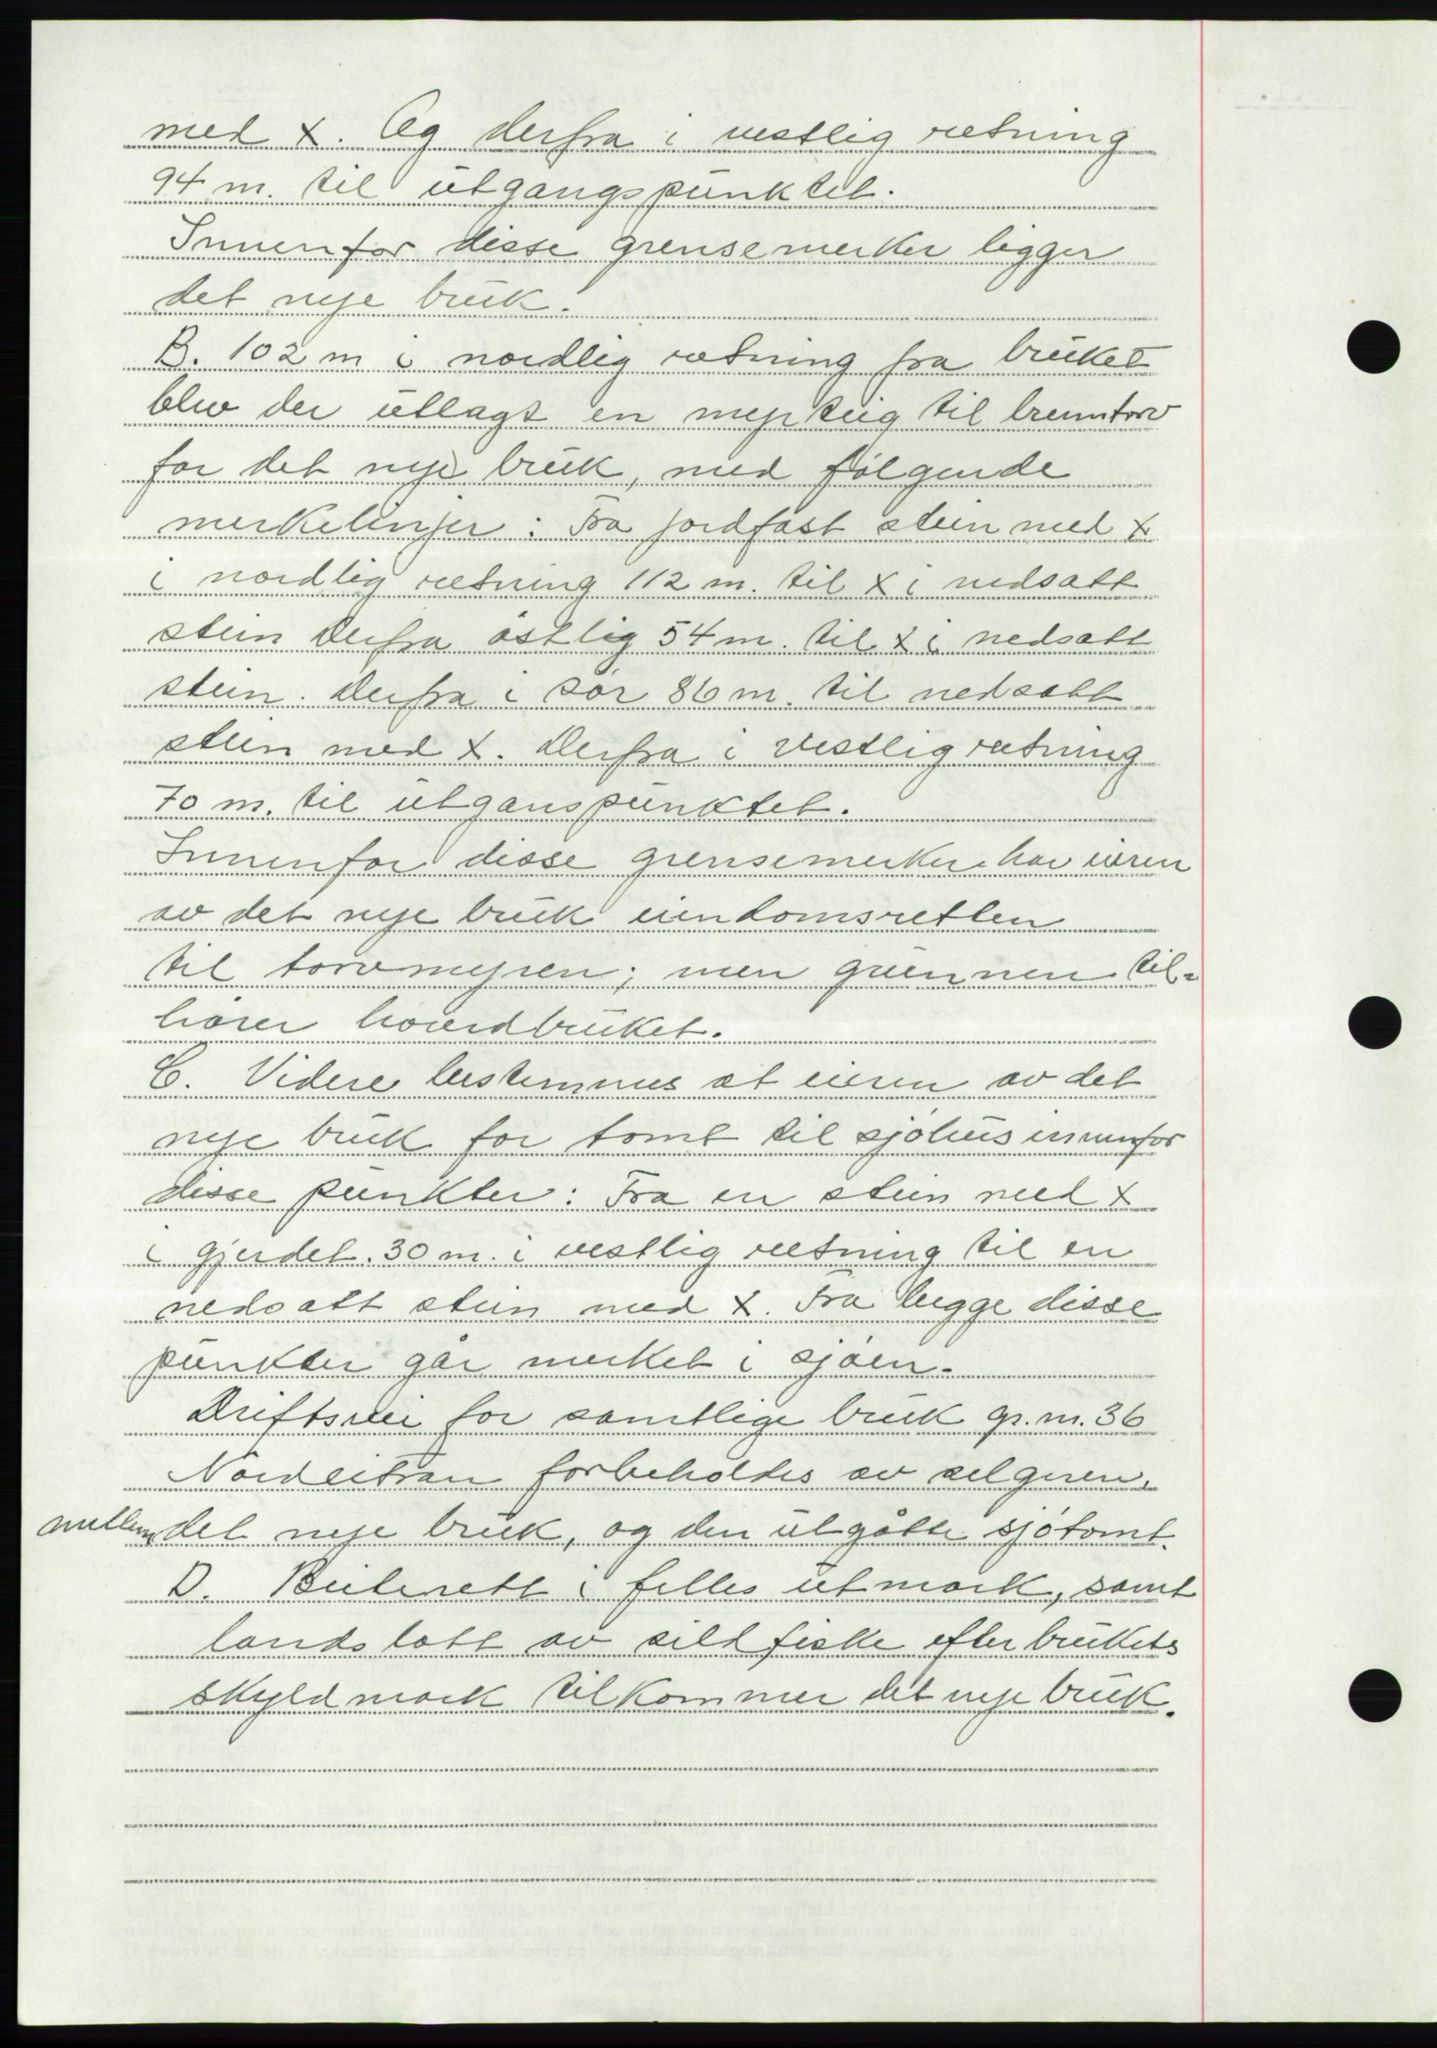 med x. Og derfra i vestlig retning
94 m. til utgangspunktet.
Innenfor disse grensemerker ligger
det nye bruk.
B. 102 m i nordlig retning fra bruket
blev der utlagt en myrteig til brenntorv
for det nye bruk, med følgende
merkelinjer: Fra jordfast stein med x
i nordlig retning 112 m. til x i nedsatt
stein Derfra østlig 54 m. til x i nedsatt
stein. Derfra i sør 86 m. til nedsatt
stein med x. Derfra i vestlig retning
70 m. til utganspunktet.
Innenfor disse grensemerker har eieren
av det nye bruk eiendomsretten
til torvmyren; men grunnen til-
hører hovedbruket.
C. Videre bestemmes at eieren av det
nye bruk for tomt til sjøhus innenfor
disse punkter: Fra en stein med x
i gjerdet. 30 m. i vestlig retning til en
nedsatt stein med x. Fra begge disse
punkter går merket i sjøen.
Driftsvei for samtlige bruk gr. m. 36
Nordeitran forbeholdes av selgeren,
mellem det nye bruk, og den utgåtte sjøtomt.
D. Beiterett i felles utmark, samt
landslott av sildfiske efter brukets
skyldmark tilkommer det nye bruk.